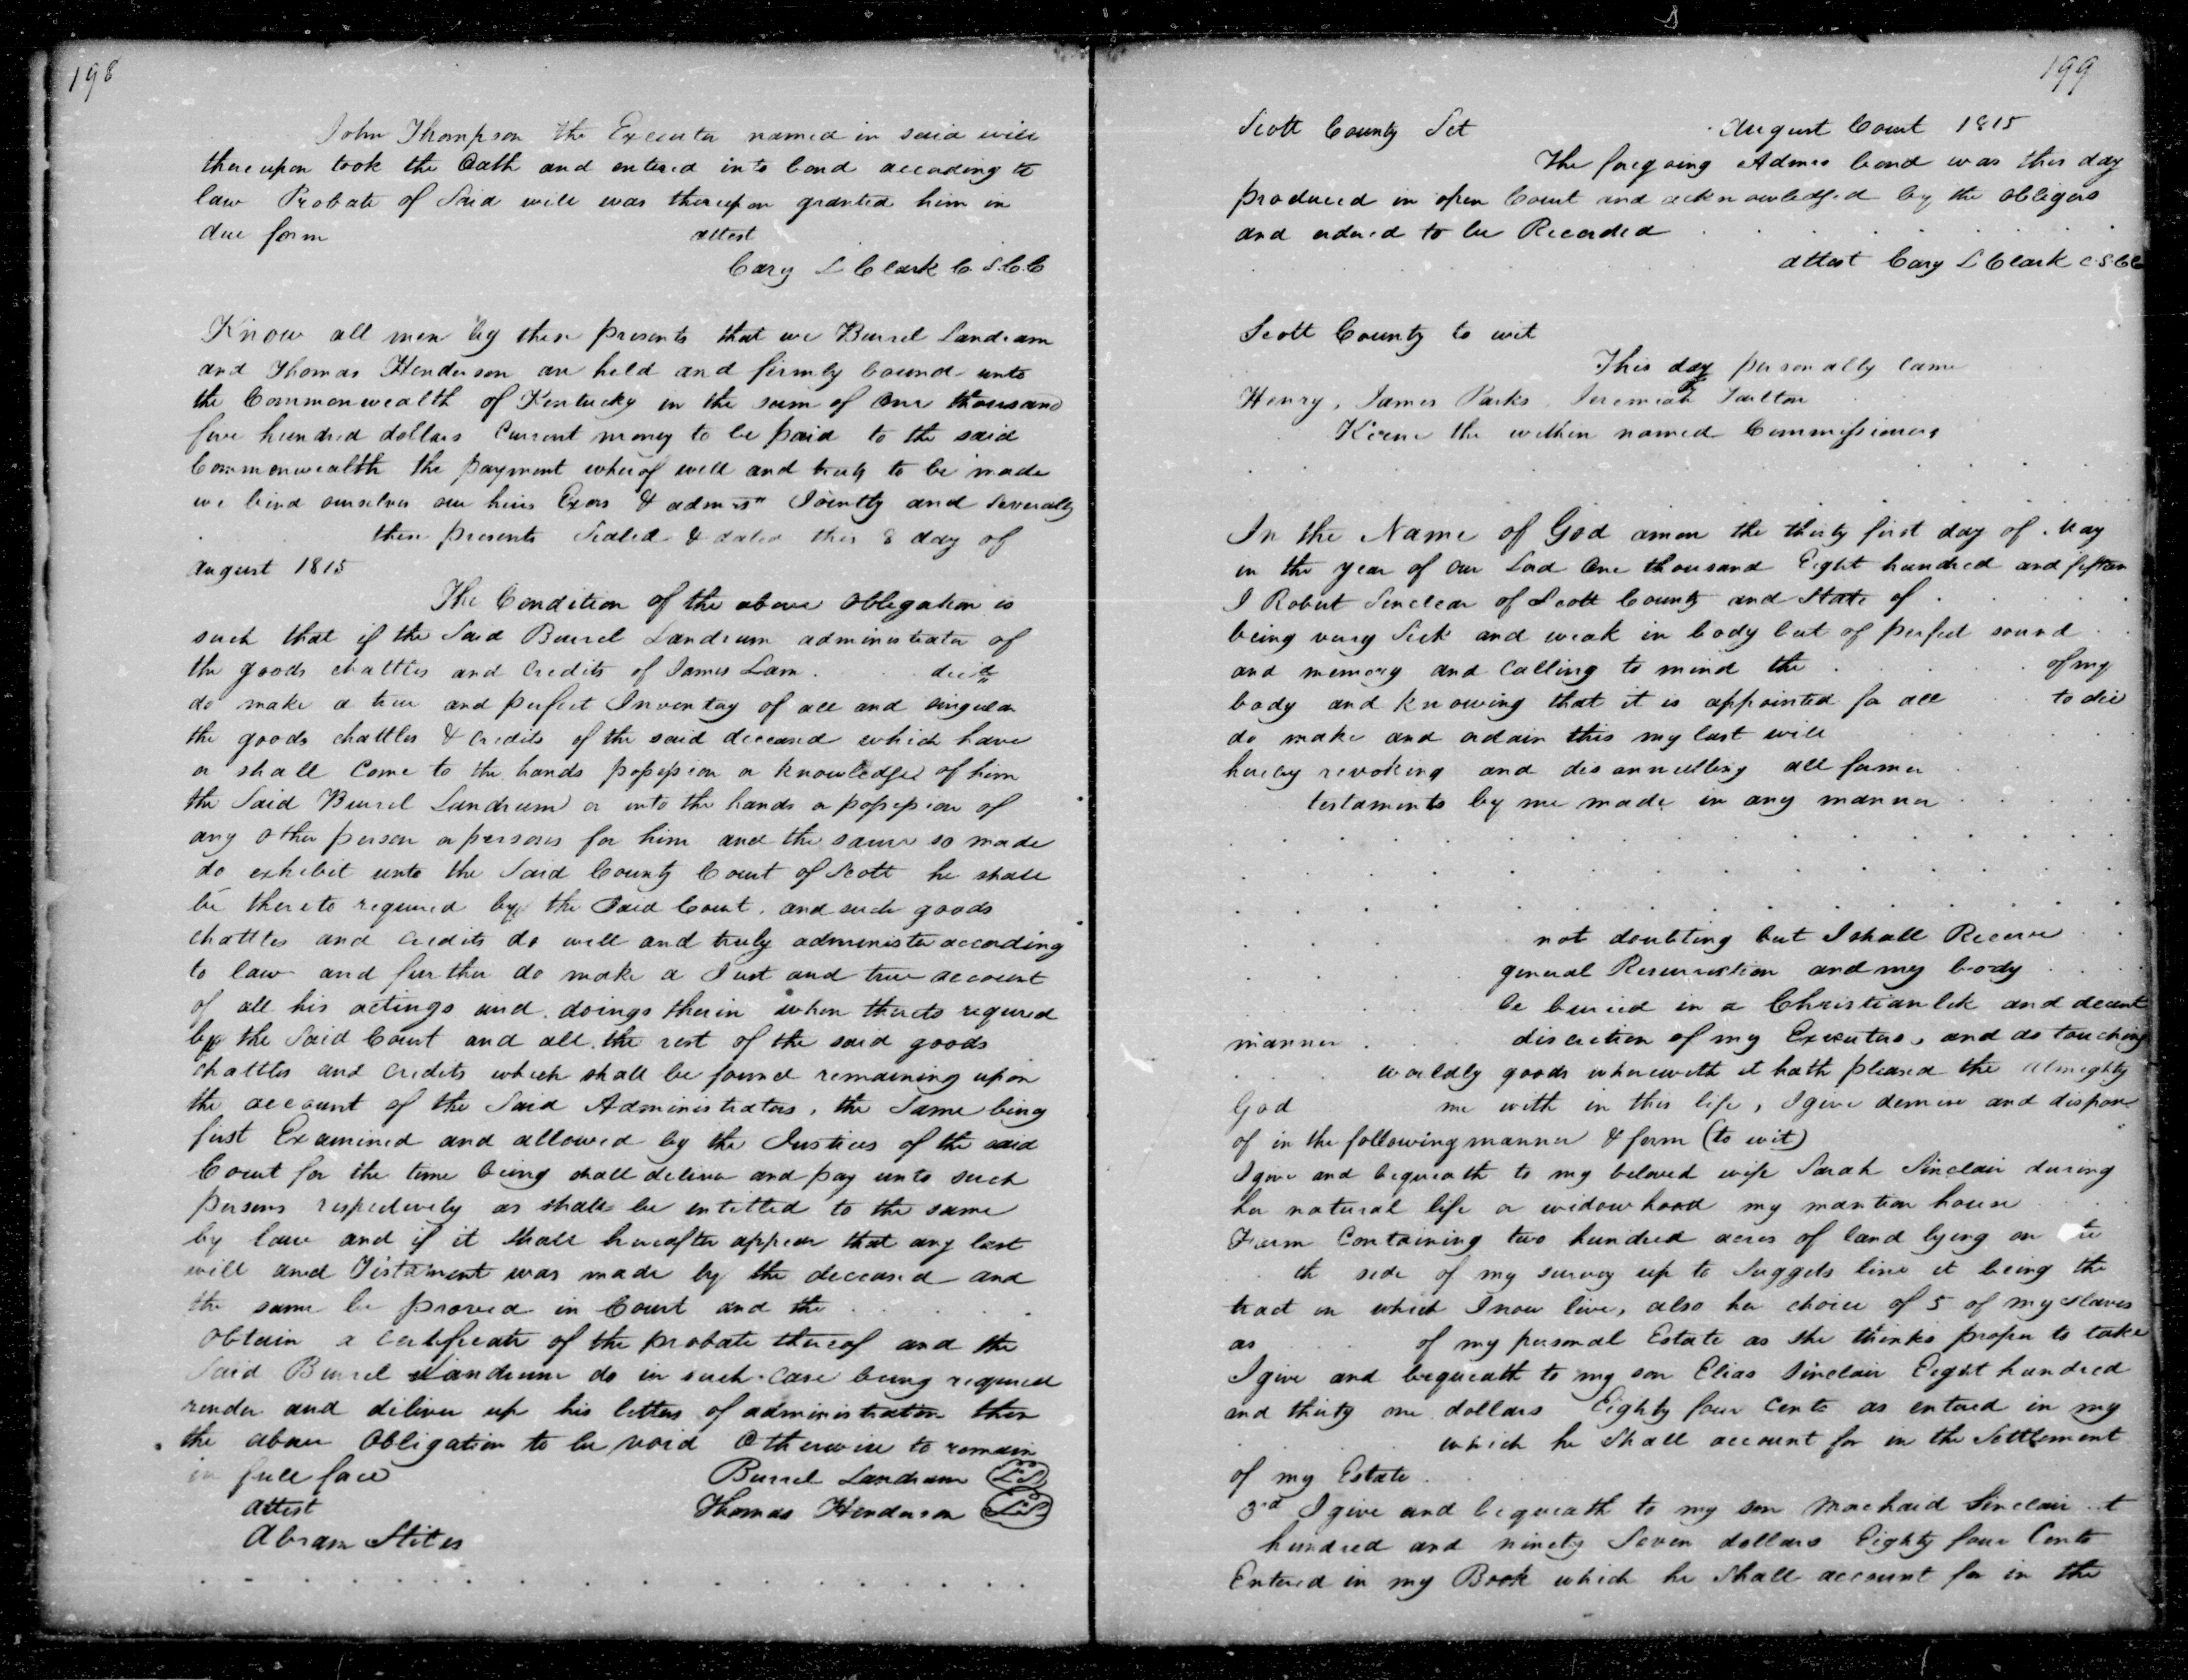 198
John Thompson the Executor named in said will
thereupon took the Oath and entered into bond according to
law Probate of Said will was thereupon granted him in
due form attest
Cary L Clark C. S.C.C

Know all men by these presents that we Burrel Landram
and Thomas Henderson are held and firmly bound unto
the Commonwealth of Kentucky in the sum of One thousand
five hundred dollars Current money to be paid to the said
Commonwealth the payment whereof well and truly to be made
we bind ourselves our heirs Exors & admrs Jointly and Severally
these presents Sealed & dated this 8 day of
August 1815
The Condition of the above obligation is
such that if the Said Burrel Landrum administrator of
the goods chattles and Credits of James Lam . . . decd
do make a true and perfect Inventory of all and singular
the goods chattles & credits of the said deceased which have
or shall Come to the hands possession or knowledge of him
the Said Burrel Landrum or into the hands or possession of
any other person or persons for him and the same so made
do exhibit unto the Said County Court of Scott he shall
be thereto required by the Said Court, and such goods
chattles and credits do well and truly administer according
to law and further do make a Just and true account
of all his actings and doings therein when thereto required
by the Said Court and all the rest of the said goods
chattles and credits which shall be found remaining upon
the account of the Said Administrators, the Same being
first Examined and allowed by the Justices of the said
Court for the time being shall deliver and pay unto such
persons respectively as shall be intitled to the same
by law and if it shall hereafter appear that any last
will and Testament was made by the deceased and
the same be proved in Court and the . . . .
Obtain a certificate of the probate thereof and the
Said Burrel Landrum do in such case being required
render and deliver up his letters of administration then
the above Obligation to be void Otherwise to remain
in full force Burrel Landrum L.S
attest Thomas Henderson L.S
Abram Stites

199
Scott County Sct August Court 1815
The foregoing Admrs bond was this day
produced in open Court and acknowledged by the obligors
and ordered to be Recorded
attest Cary L Clark C.S.CC

Scott County to wit
This day personally came
Henry, James Parks, Jeremiah Tarlton
Keene the within named Commissioners

In the Name of God amen the thirty first day of May
in the year of our Lord One thousand Eight hundred and fifteen
I Robert Sinclear of Scott County and State of . . .
being very Sick and weak in body but of perfect sound . .
and memory and Calling to mind the . . . . of my
body and knowing that it is appointed for all to die
do make and ordain this my last will
hereby revoking and disannulling all former
testaments by me made in any manner . . . . .
not doubting but I shall Receive . .
general Resurrection and my body
be buried in a Christianlik and decent
manner . . discretion of my Executors, and as touching
worldly goods wherewith it hath pleased the almighty
God me with in this life, I give demise and dispose
of in the following manner & form (to wit)
I give and bequeath to my beloved wife Sarah Sinclair during
her natural life or widowhood my mantion house
Farm Containing two hundred acres of land lying on
th side of my survey up to Suggets line it being the
tract on which I now live, also her choice of 5 of my slaves
as . . . of my personal Estate as she thinks proper to take
I give and bequeath to my son Elias Sinclair Eight hundred
and thirty one dollars Eighty four Cents as entered in my
which he Shall account for in the Settlement
of my Estate
3rd I give and bequeath to my son Sinclair
hundred and ninety Seven dollars Eighty four Cents
Entered in my Book which he Shall account for in the